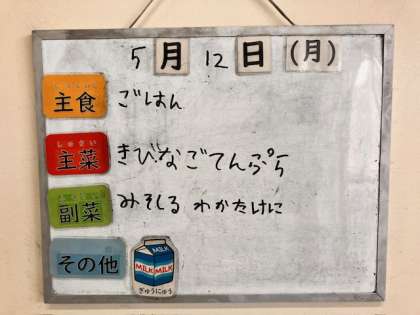 5月12日(月)
主食 ごはん
しゅさい
主菜 きびなごてんぷら
副菜 みそしる わかたけに
その他
MILK MILK
ぎゅうにゅう